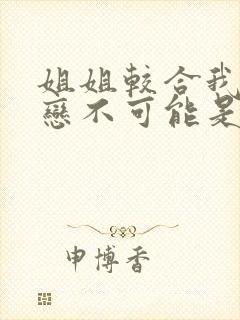 姐姐較合我
戀不可能是
申博香